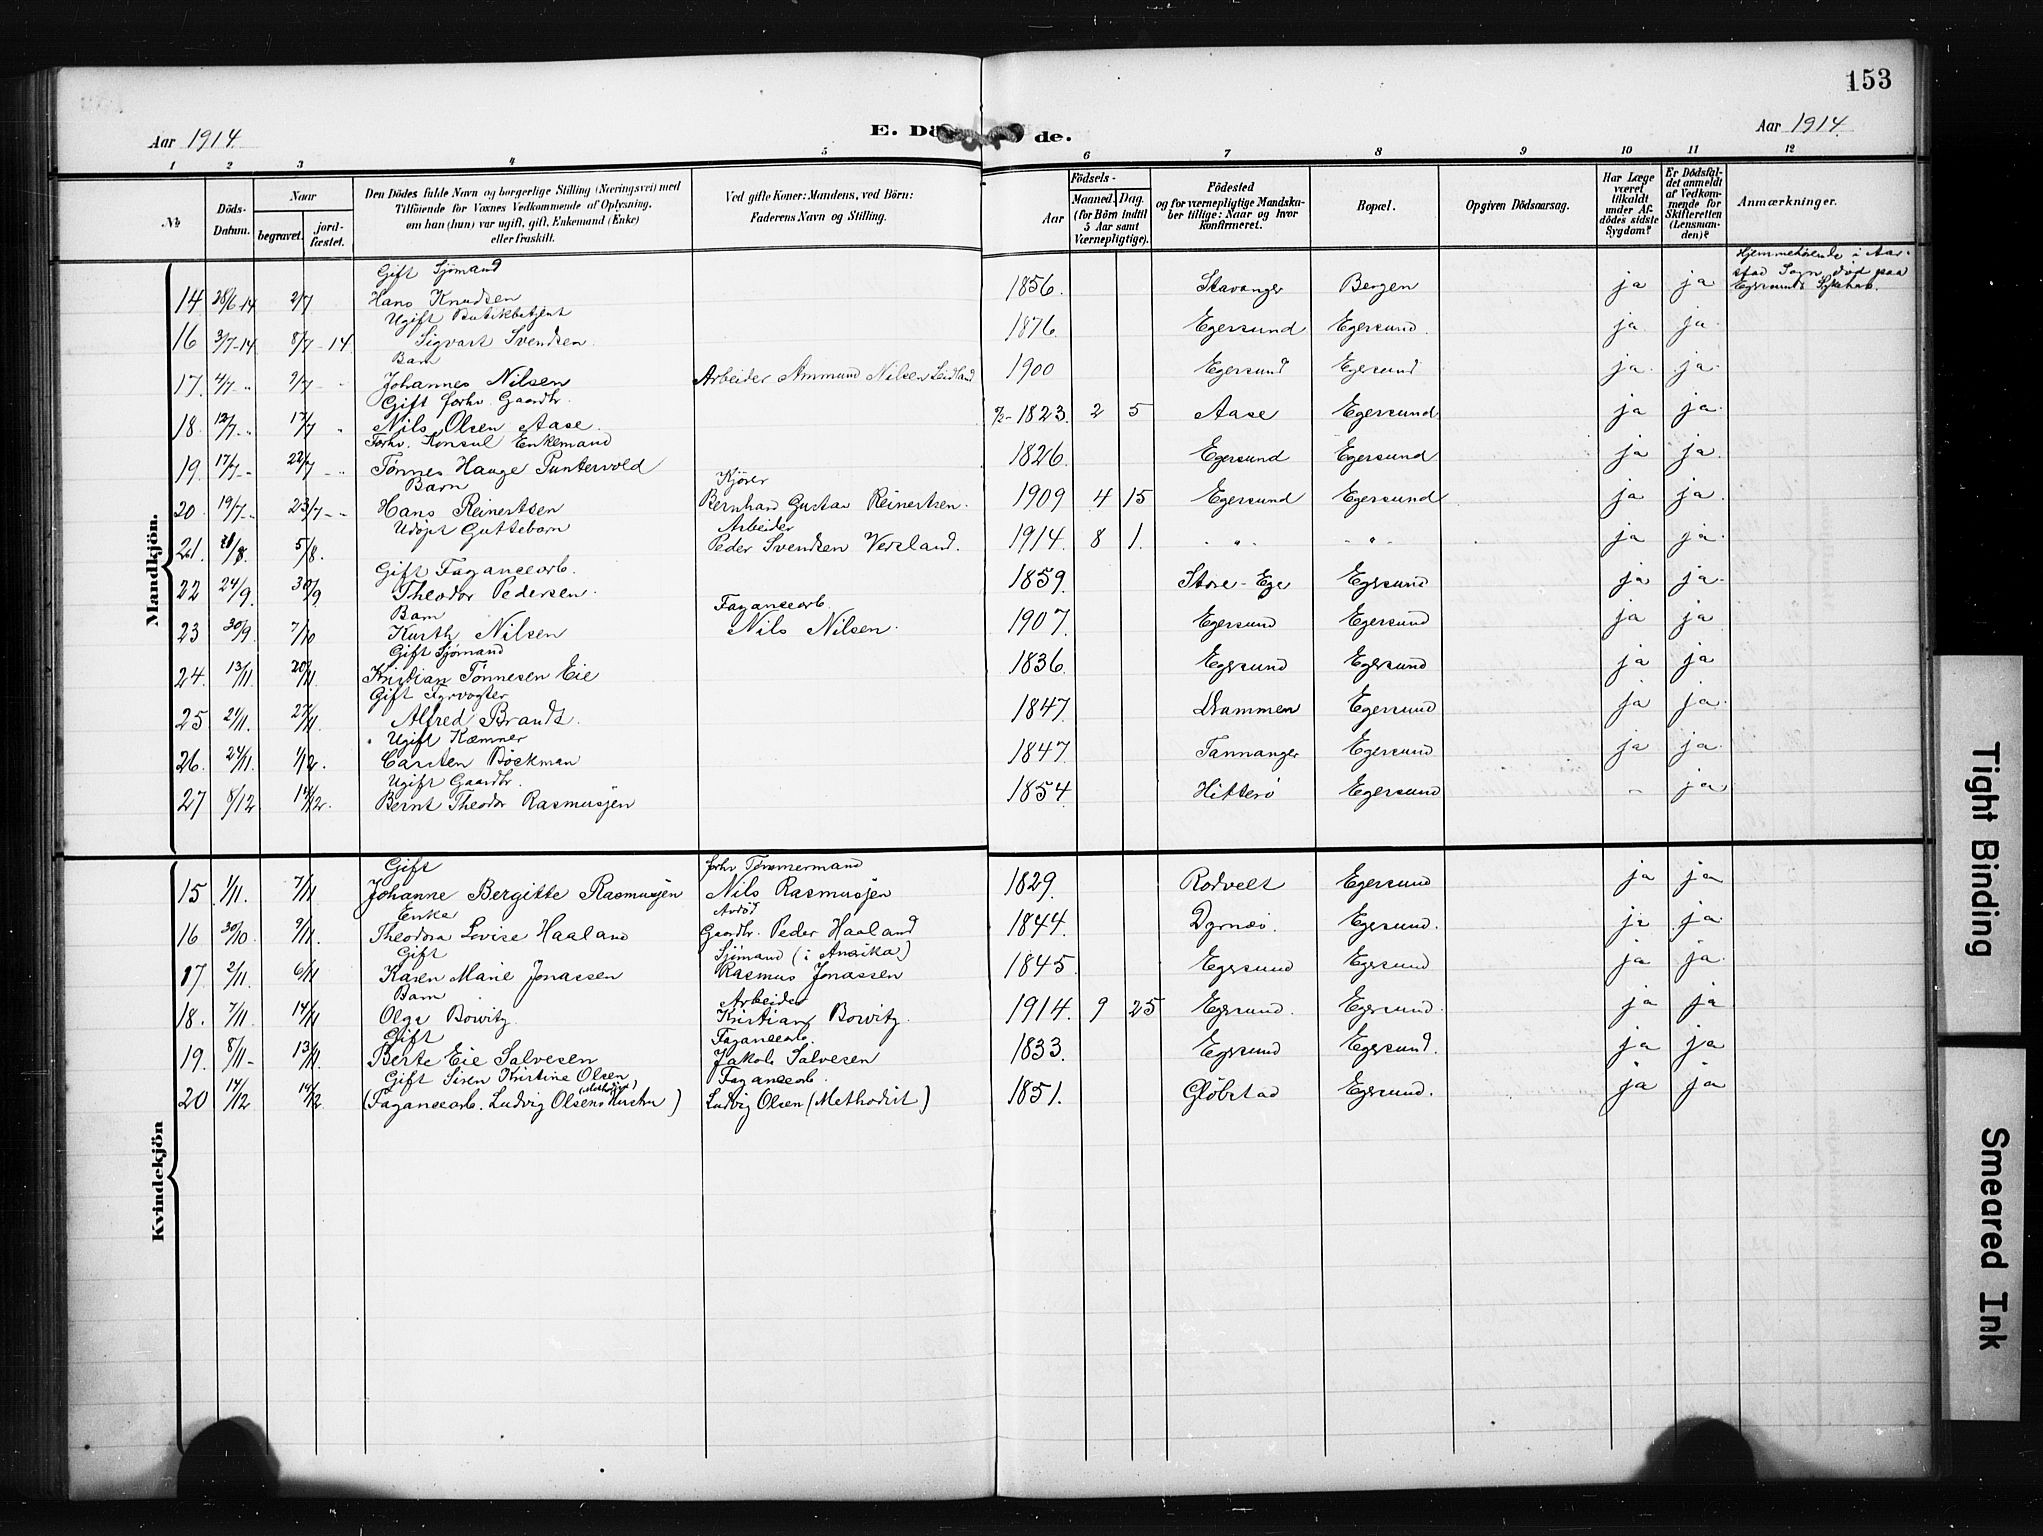 153
Aar 1914.
E. Dö
de.
Aar 1914.
1 2 3 4 5 6 7 8 9 10 11 12
No.
Döds-
Datum.
Naar
begravet. jord-
fæstet.
Den Dödes fulde Navn og borgerlige Stilling (Næringsvei) med
Tilföiende for Voxnes Vedkommende af Oplysning,
om han (hun) var ugift, gift, Enkemand (Enke)
eller fraskilt.
Ved gifte Koner: Mandens, ved Börn:
Faderens Navn og Stilling.
Födsels-
Aar
Maaned. Dag.
(for Börn indtil
5 Aar samt
Værnepligtige).
Födested
og for værnepligtige Mandska-
ber tillige: Naar og hvor
konfirmeret.
Bopæl.
Opgiven Dödsaarsag.
Har Læge
været
tilkaldt
under Af-
dödes sidste
Sygdom?
Er Dödsfal-
det anmeldt
af Vedkom-
mende for
Skifteretten
(Lensman-
den)?
Anmærkninger.
Mandkjön.
Gift Sjömand
14 28/6-14 2/7 Hans Knudsen 1856. Stavanger Bergen ja ja Hjemmehörende i Aar-
stad Sogn, död paa
Egersunds Sykehus.
Ugift Butikbetjent
16 3/7-14 8/7-14 Sigvart Svendsen 1876. Egersund Egersund. ja ja.
Barn
17. 4/7-" 9/7 - Johannes Nilsen Arbeider Ammund Nilsen Leidland 1900 Egersund Egersund ja ja.
Gift forhv. Gaardbr.
18. 12/7-" 17/7 " Nils Olsen Aase. 1823. 2 5 Aase Egersund ja ja.
Forhv. Konsul Enkemand
19. 17/7-" 22/7 -" Tönnes Hauge Puntervold 1826. Egersund Egersund ja ja.
Barn Kjörer
20. 19/7-" 23/7-" Hans Reinertsen Bernhard Gustav Reinertsen. 1909 4 15 Egersund Egersund ja ja.
Udöpt Guttebarn Arbeider
21. 5/8. Peder Svendsen Versland. 1914 8 1. -"- -"- ja ja.
Gift Fayancearb.
22 24/9. 30/9 Theodor Pedersen. 1859. Store-Ege Egersund ja ja.
Barn Fayancearb.
23 30/9. 7/10 Kurth Nilsen Nils Nilsen. 1907. Egersund Egersund ja ja
Gift Sjömand
24. 13/11. 20/11. Kristian Tönnesen Eie 1836. Egersund Egersund ja ja
Gift Fyrvogter
25 21/11. 27/11. Alfred Brandt. 1847. Drammen Egersund ja ja.
Ugift Kæmner
26. 24/11. 1/12. Carsten Böckman 1847. Tannanger Egersund ja ja.
Ugift Gaardbr.
27 8/12 14/12. Bernt Theodor Rasmussen 1854. Hitterö Egersund - ja
Kvindekjön
Gift forhv Tömmermand
15. 1/11. 7/11 Johanne Bergitte Rasmussen Nils Rasmussen 1829. Rodvelt Egersund ja ja
Enke Avdöd
16 30/10. 9/11. Theodora Lovise Haaland Gaardbr. Peder Haaland 1844. Dyrnæs. Egersund. ja ja.
Gift Sjömand (i Amerika)
17 2/11 6/11 Karen Marie Jonassen Rasmus Jonassen 1845. Egersund Egersund ja ja.
Barn Arbeider
18. 7/11. 14/11 Olga Bowitz Kristian Bowitz. 1914. 9 25 Egersund. Egersund. ja ja
Gift Fayancearb.
19. 8/11- 13/11. Berte Eie Salvesen Jakob Salvesen 1833. Egersund Egersund. ja ja
Gift Siren Kristine Olsen Fayancearb.
20 14/12 19/12. (Fayancearb. Ludvig Olsens (Methodist) Hustru) Ludvig Olsen (Methodist) 1851. Glöbstad Egersund. ja ja
Tight Binding
Smeared Ink